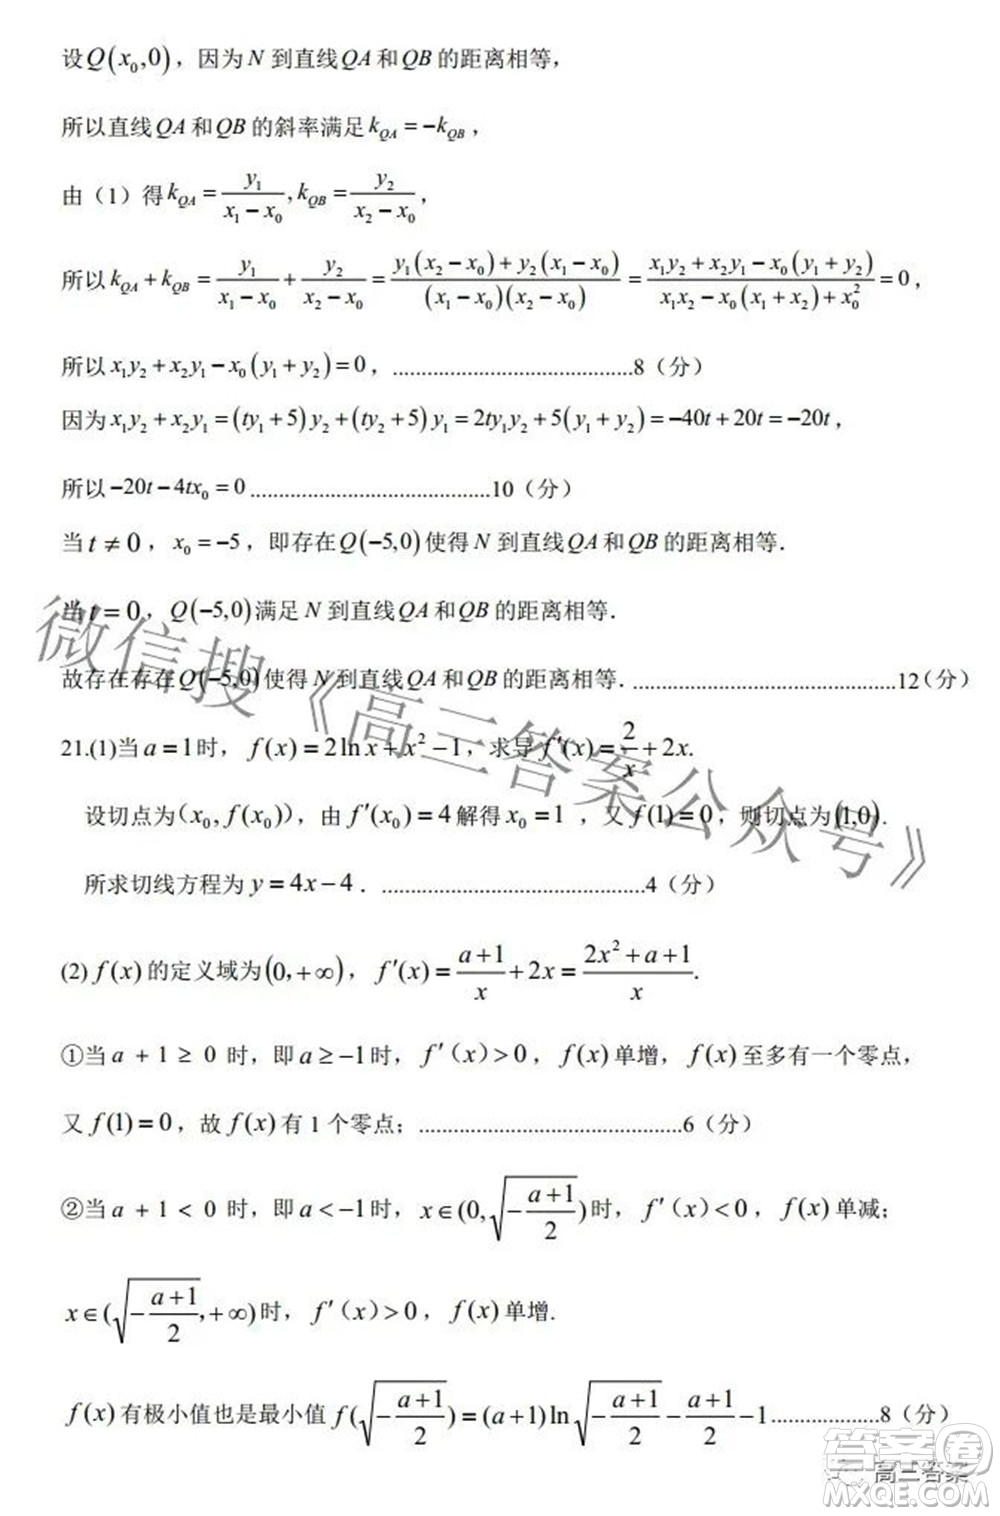 设Q(x₀,0)，因为N到直线QA和QB的距离相等，
所以直线QA和QB的斜率满足k_{QA}=-k_{QB}，
由（1）得k_{QA}=\frac{y₁}{x₁-x₀},k_{QB}=\frac{y₂}{x₂-x₀}，
所以k_{QA}+k_{QB}=\frac{y₁}{x₁-x₀}+\frac{y₂}{x₂-x₀}=\frac{y₁(x₂-x₀)+y₂(x₁-x₀)}{(x₁-x₀)(x₂-x₀)}=\frac{x₁y₂+x₂y₁-x₀(y₁+y₂)}{x₁x₂-x₀(x₁+x₂)+x₀²}=0，
所以x₁y₂+x₂y₁-x₀(y₁+y₂)=0，........................................8（分）
因为x₁y₂+x₂y₁=(ty₁+5)y₂+(ty₂+5)y₁=2ty₁y₂+5(y₁+y₂)=-40t+20t=-20t，
所以-20t-4tx₀=0........................................10（分）
当t≠0，x₀=-5，即存在Q(-5,0)使得N到直线QA和QB的距离相等．
当t=0，Q(-5,0)满足N到直线QA和QB的距离相等．
故存在存在Q(-5,0)使得N到直线QA和QB的距离相等．............................................12（分）
21.(1)当a=1时，f(x)=2ln x+x²-1，求导f′(x)=\frac{2}{x}+2x.
设切点为(x₀,f(x₀))，由f′(x₀)=4解得x₀=1，又f(1)=0，则切点为(1,0).
所求切线方程为y=4x-4．............................................4（分）
(2)f(x)的定义域为(0,+∞)，f′(x)=\frac{a+1}{x}+2x=\frac{2x²+a+1}{x}.
①当a+1≥0时，即a≥-1时，f′(x)>0，f(x)单增，f(x)至多有一个零点，
又f(1)=0，故f(x)有1个零点；............................................6（分）
②当a+1<0时，即a<-1时，x∈(0,\sqrt{-\frac{a+1}{2}})时，f′(x)<0，f(x)单减；
x∈(\sqrt{-\frac{a+1}{2}},+∞)时，f′(x)>0，f(x)单增.
f(x)有极小值也是最小值f(\sqrt{-\frac{a+1}{2}})=(a+1)ln\sqrt{-\frac{a+1}{2}}-\frac{a+1}{2}-1..................8（分）
微信搜《高三答案公众号》
答案卷
高三答案
MXQE.COM